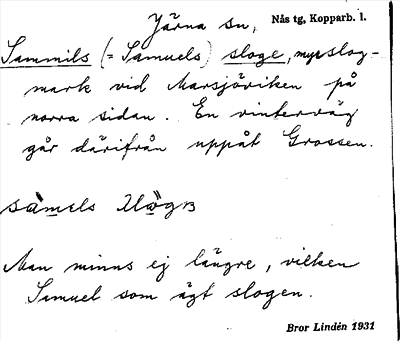 Järna sn, Nås tg, Kopparb. l.
Sammils (= Samuels) sloge, myrslog-
mark vid Marsjöviken på
norra sidan. En vinterväg
går därifrån uppåt Grossen.
Man minns ej längre, vilken
Samuel som ägt slogen.
Bror Lindén 1931